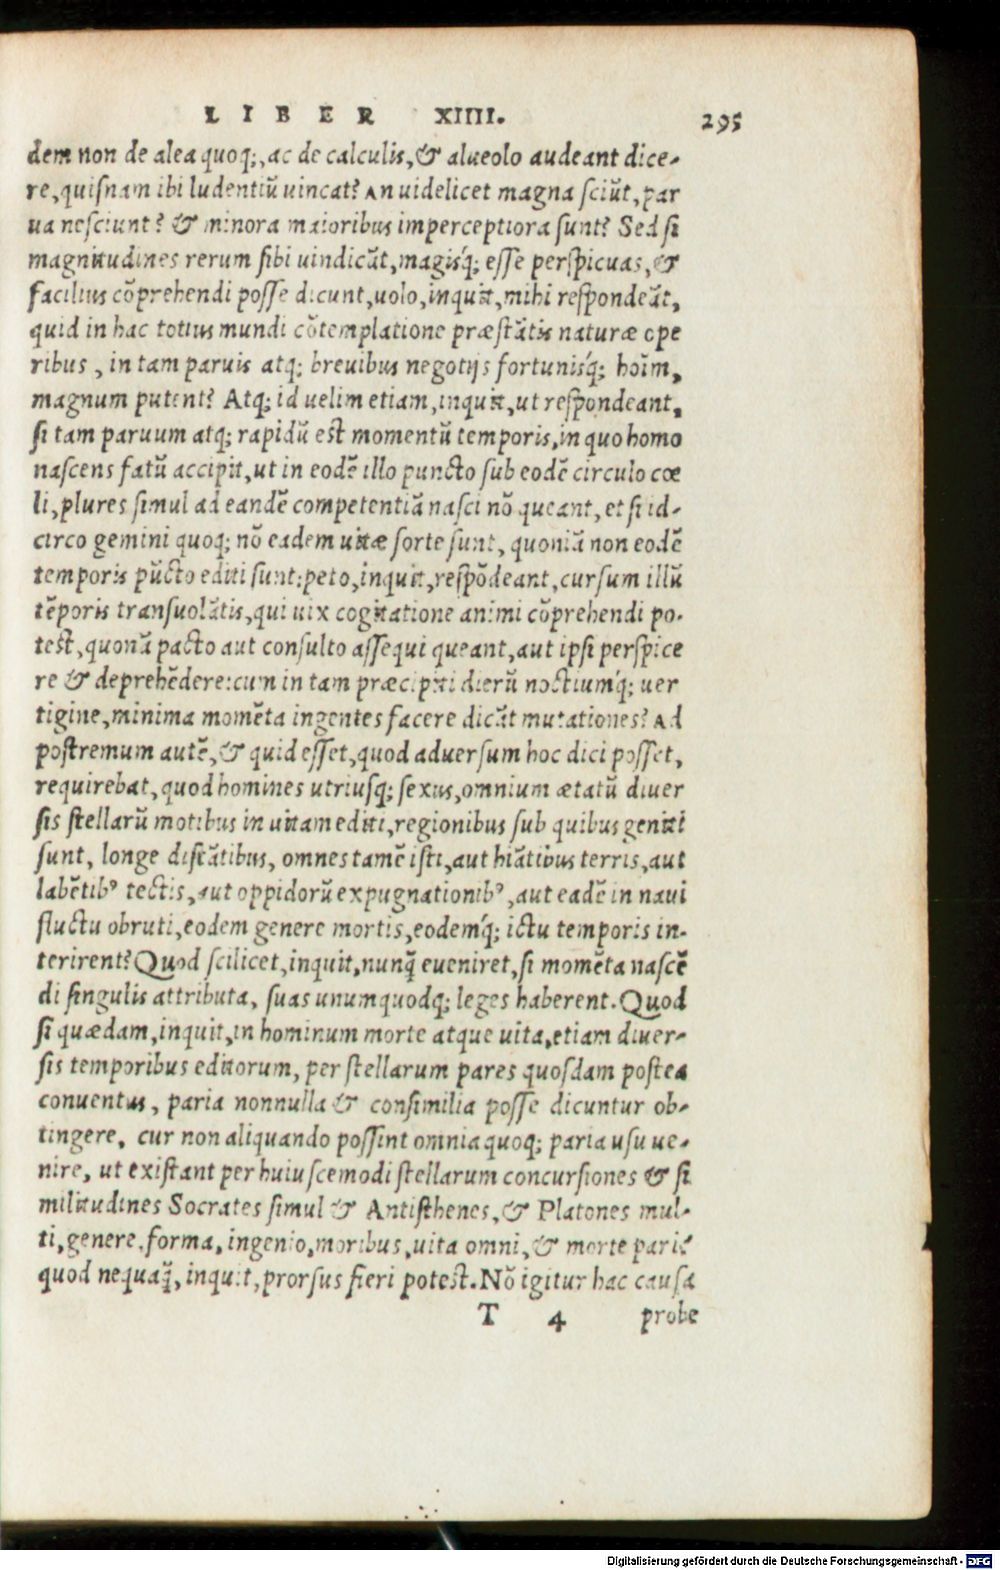 LIBER XIIII. 295
dem non de alea quoq;, ac de calculis, & alueolo audeant dice-
re, quisnam ibi ludentiũ uincat? An uidelicet magna sciũt, par
ua nesciunt? & minora maioribus imperceptiora sunt? Sed si
magnitudines rerum sibi uindicãt, magisq́; esse perspicuas, &
facilius cõprehendi posse dicunt, uolo, inquit, mihi respondeãt,
quid in hac totius mundi cõtemplatione præstãtis naturæ ope
ribus, in tam paruis atq; breuibus negotijs fortunisq́; hoĩm,
magnum putent? Atq; id uelim etiam, inquit, ut respondeant,
si tam paruum atq; rapidũ est momentũ temporis, in quo homo
nascens fatũ accipit, ut in eodẽ illo puncto sub eodẽ circulo cœ
li, plures simul ad eandẽ competentiã nasci nõ queant, et si id-
circo gemini quoq; nõ eadem uitæ sorte sunt, quoniã non eodẽ
temporis pũcto editi sunt: peto, inquit, respõdeant, cursum illũ
tẽporis transuolãtis, qui uix cogitatione animi cõprehendi po-
test, quonã pacto aut consulto assequi queant, aut ipsi perspice
re & deprehẽdere: cum in tam præcipiti dierũ noctiumq́; uer
tigine, minima momẽta ingentes facere dicãt mutationes? Ad
postremum autẽ, & quid esset, quod aduersum hoc dici posset,
requirebat, quod homines utriusq; sexus, omnium ætatũ diuer
sis stellarũ motibus in uitam editi, regionibus sub quibus geniti
sunt, longe distãtibus, omnes tamẽ isti, aut hiãtibus terris, aut
labẽtibꝰ tectis, aut oppidorũ expugnationibꝰ, aut eadẽ in naui
fluctu obruti, eodem genere mortis, eodemq́; ictu temporis in-
terirent? Quod scilicet, inquit, nunq̃ eueniret, si momẽta nascẽ
di singulis attributa, suas unumquodq; leges haberent. Quod
si quædam, inquit, in hominum morte atque uita, etiam diuer-
sis temporibus editorum, per stellarum pares quosdam postea
conuentus, paria nonnulla & consimilia posse dicuntur ob-
tingere, cur non aliquando possint omnia quoq; paria usu ue-
nire, ut existant per huiuscemodi stellarum concursiones & si
militudines Socrates simul & Antisthenes, & Platones mul-
ti, genere, forma, ingenio, moribus, uita omni, & morte pari?
quod nequaq̃, inquit, prorsus fieri potest. Nõ igitur hac causa
T 4 probe
Digitalisierung gefördert durch die Deutsche Forschungsgemeinschaft - DFG